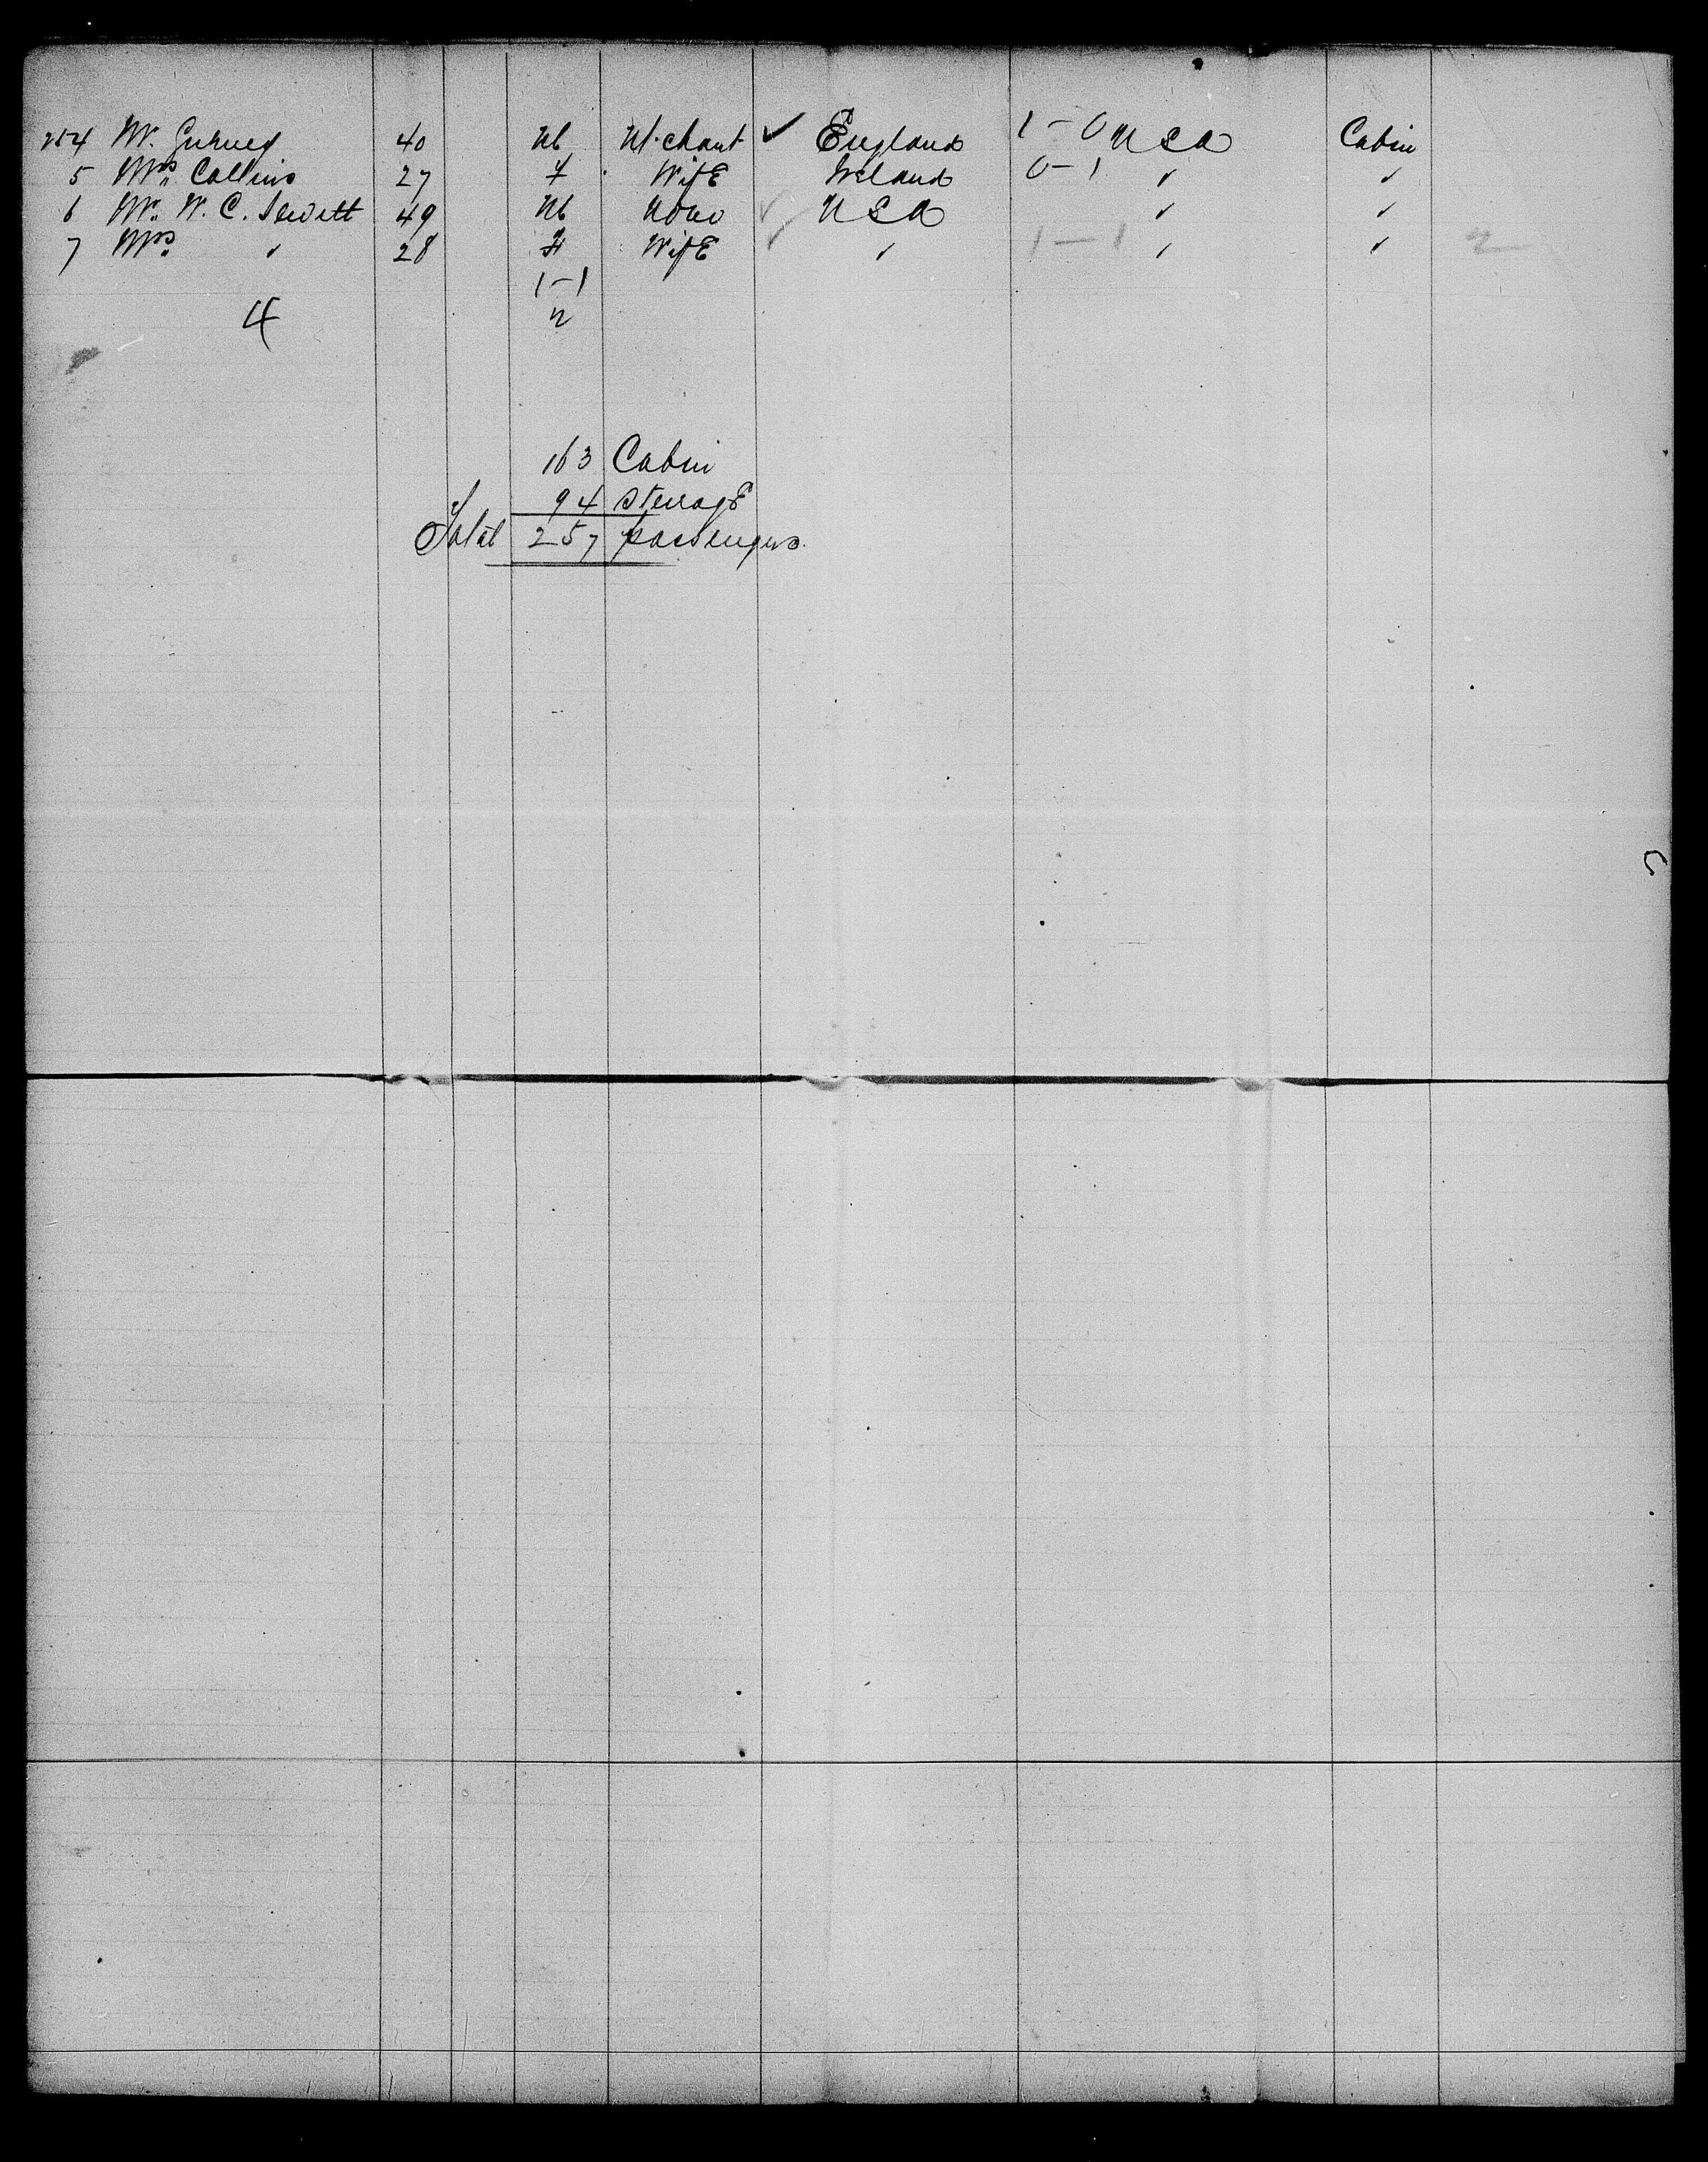 254 Mr. Gurney 40 M M.chant ✓ England 1-0 USA Cabin
5 Mrs. Collins 27 F Wife Ireland 0-1 " "
6 Mr. W. C. 49 M None ✓ USA " "
7 Mrs. " 28 F Wife ✓ " 1-1 " " 2
1-1
4 2
163 Cabin
94 Steerage
Total 257 passengers.